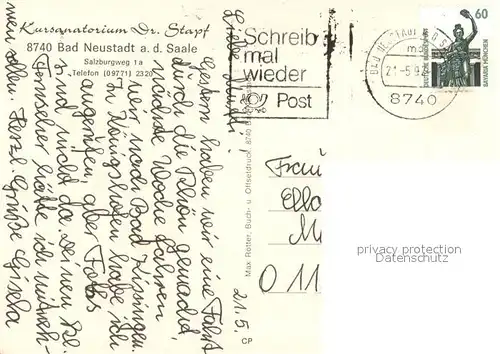 Kursanatorium Dr. Stapf
8740 Bad Neustadt a. d. Saale
Salzburgweg 1a
Telefon (09771) 2320
21.5.
Liebe Mutti!
Gestern haben wir eine Fahrt
durch die Rhön gemacht,
nächste Woche fahren
wir nach Bad Kissingen.
In Königshofen habe ich
angerufen, aber
sind nicht da. Deinen
Fernseher hätte ich
sollen. Herzl. Grüße Gisela
Max Rötter, Buch- u. Offsetdruck, 8740 Bad
CP
Schreib
mal
wieder
Post
21.-5.9
8740
60
DEUTSCHE BUNDESPOST
BAVARIA MÜNCHEN
Frau
O 11
privacy protection
Datenschutz